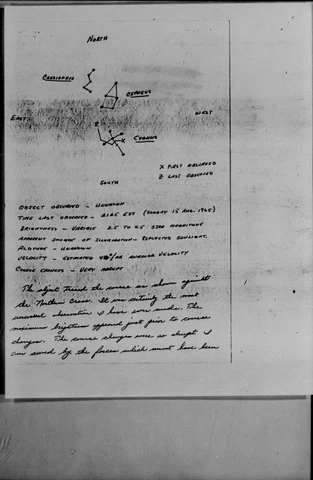 NORTH
CASSIOPEIA
CEPHEUS
EAST
WEST
Z
X
CYGNUS
X FIRST OBSERVED
Z LAST OBSERVED
SOUTH
OBJECT OBSERVED - UNKNOWN
TIME LAST OBSERVED - 2125 EST (SUNDAY 15 AUG. 1965)
BRIGHTNESS - VARIABLE 2.5 TO 4.5 STAR MAGNITUDE
APPARENT SOURCE OF ILLUMINATION - REFLECTED SUNLIGHT.
ALTITUDE - UNKNOWN
VELOCITY - ESTIMATED ANGULAR VELOCITY
COURSE CHANGES - VERY ABRUPT
The object traced the course as shown against
the Northern Cross. It was certainly the most
unusual observation I have ever made. The
maximum brightness appeared just prior to course
changes. The course changes were so abrupt I
am awed by the forces which must have been